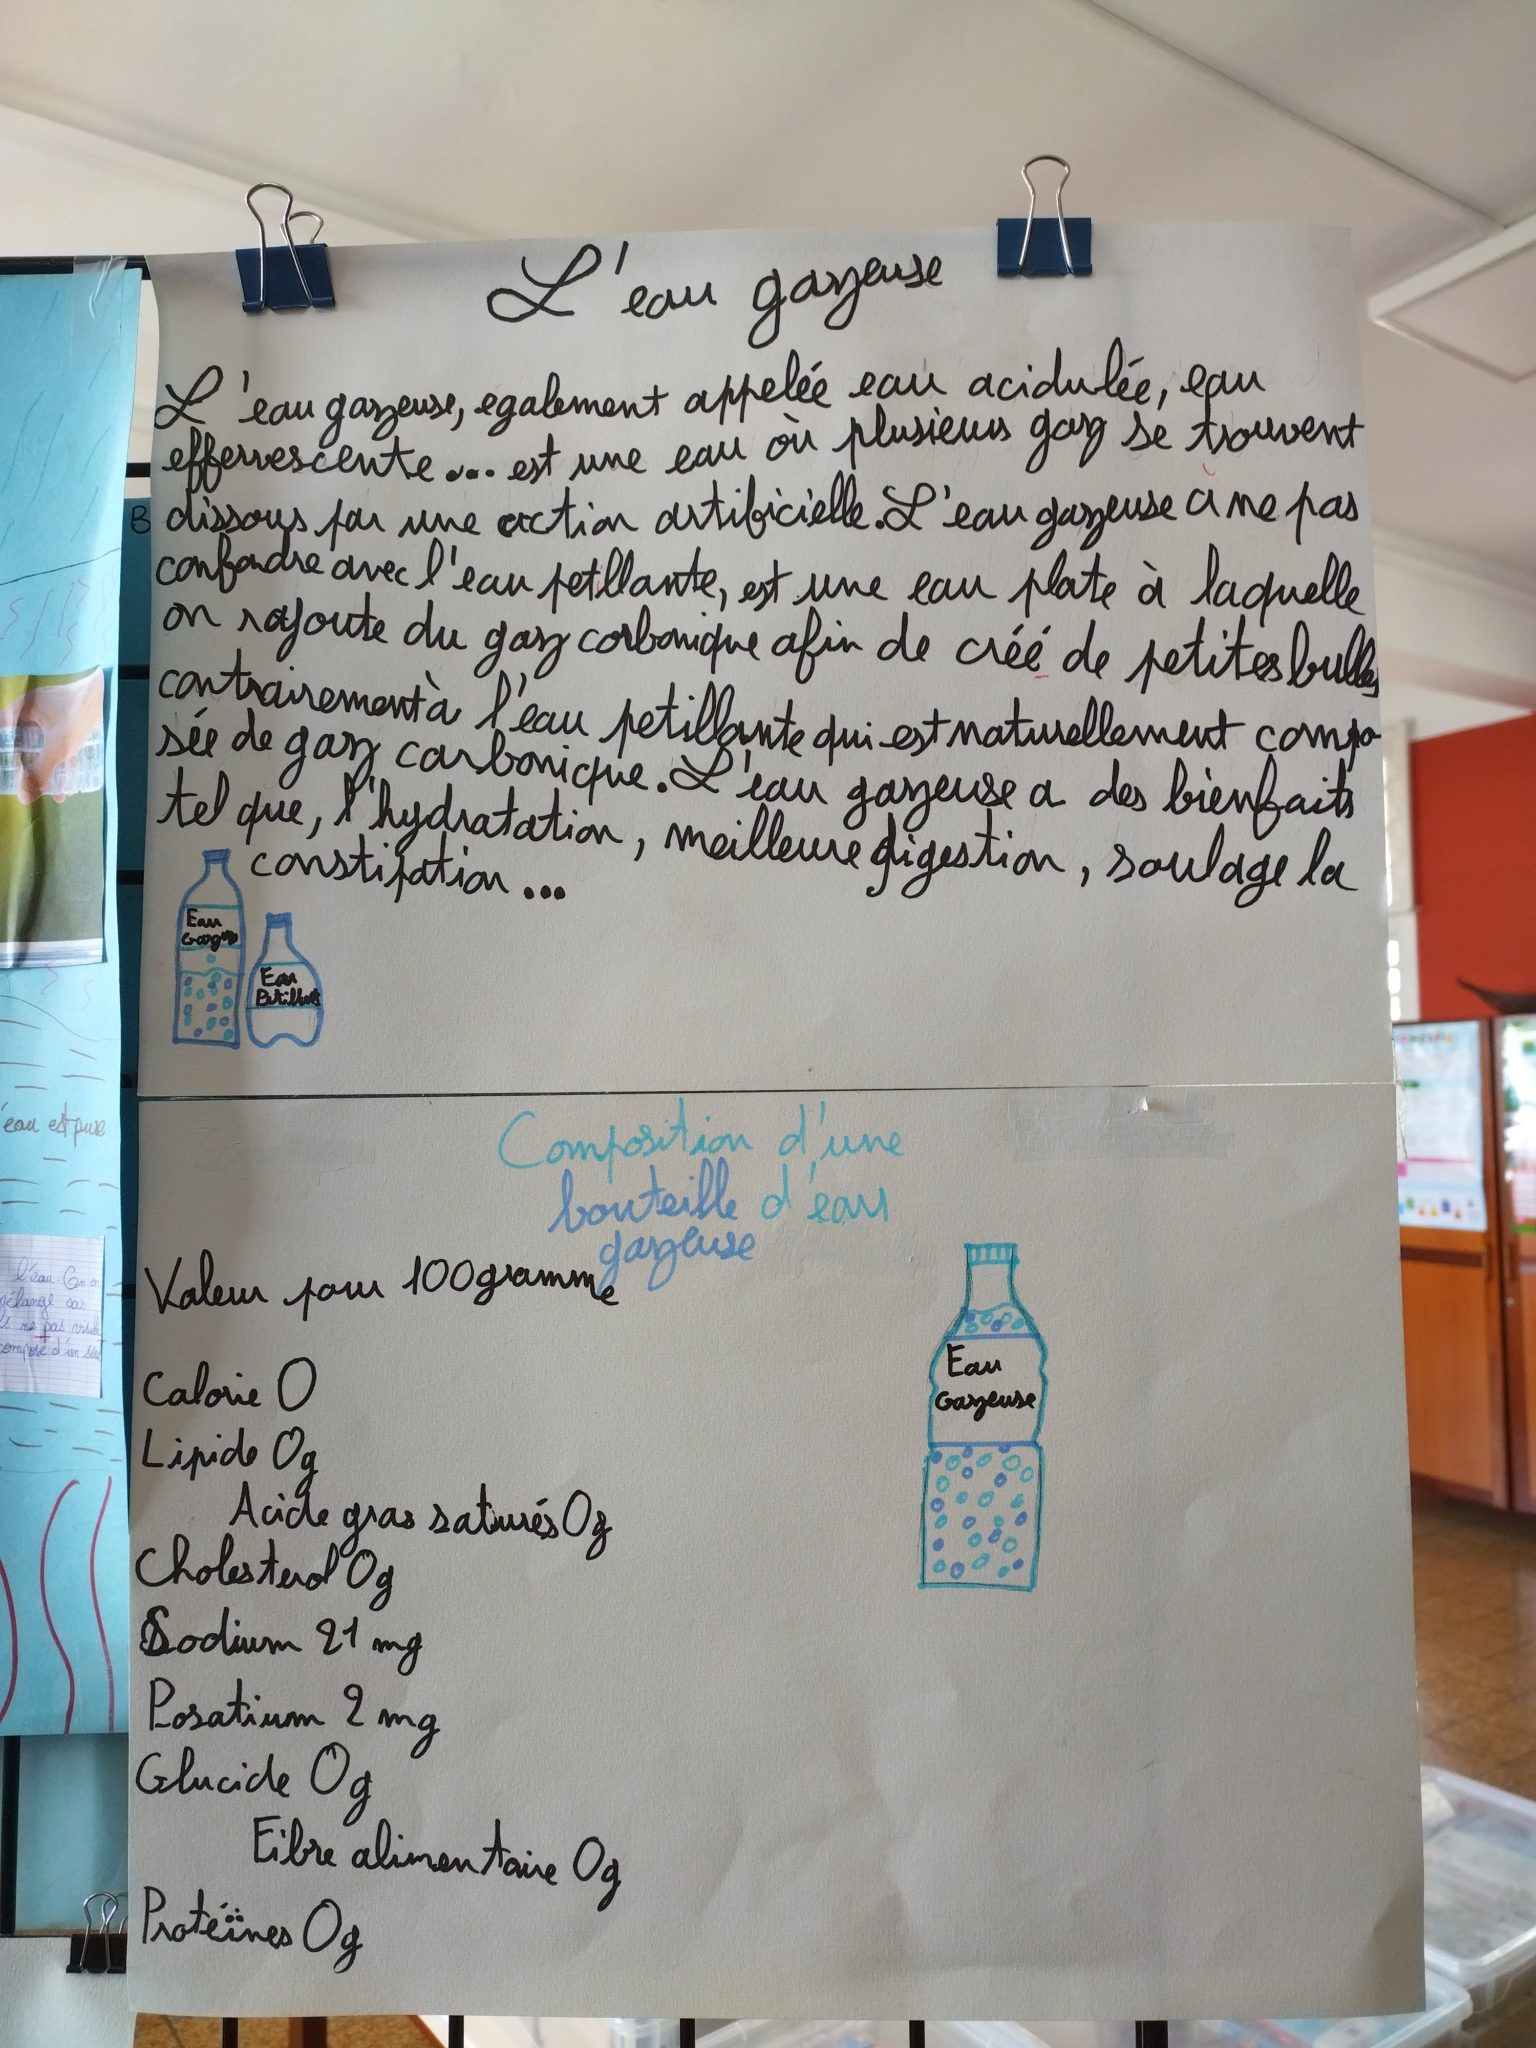 L'eau gazeuse
L'eau gazeuse, egalement appelée eau acidulée, eau
effervescente... est une eau où plusieurs gaz se trouvent
dissous par une action artificielle. L'eau gazeuse à ne pas
confondre avec l'eau petillante, est une eau plate à laquelle
on rajoute du gaz carbonique afin de créé de petites bulles
contrairement à l'eau petillante qui est naturellement compo-
sée de gaz carbonique. L'eau gazeuse a des bienfaits
tel que, l'hydratation, meilleure digestion, soulage la
constipation...
Eau
Gazeuse
Eau
Petillante
Composition d'une
bouteille d'eau
gazeuse
Valeur pour 100gramme
Calorie 0
Lipide 0g
Acide gras saturés 0g
Cholesterol 0g
Sodium 21 mg
Posatium 2 mg
Glucide 0g
Fibre alimentaire 0g
Protéïnes 0g
Eau
Gazeuse
B
eau est pure
l'eau. On en
mélange car
ne pas
composé d'un seul